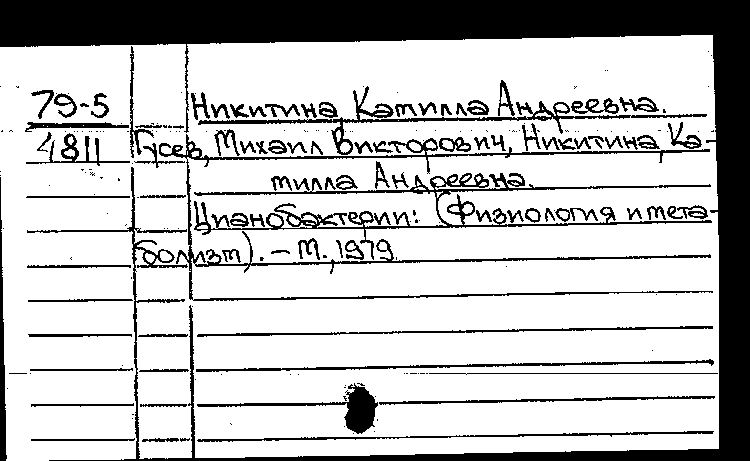 79-5 Никитина, Камилла Андреевна.
4811 Гусев, Михаил Викторович, Никитина, Ка-
милла Андреевна.
Цианобактерии: (Физиология и мета-
болизм). - М., 1979